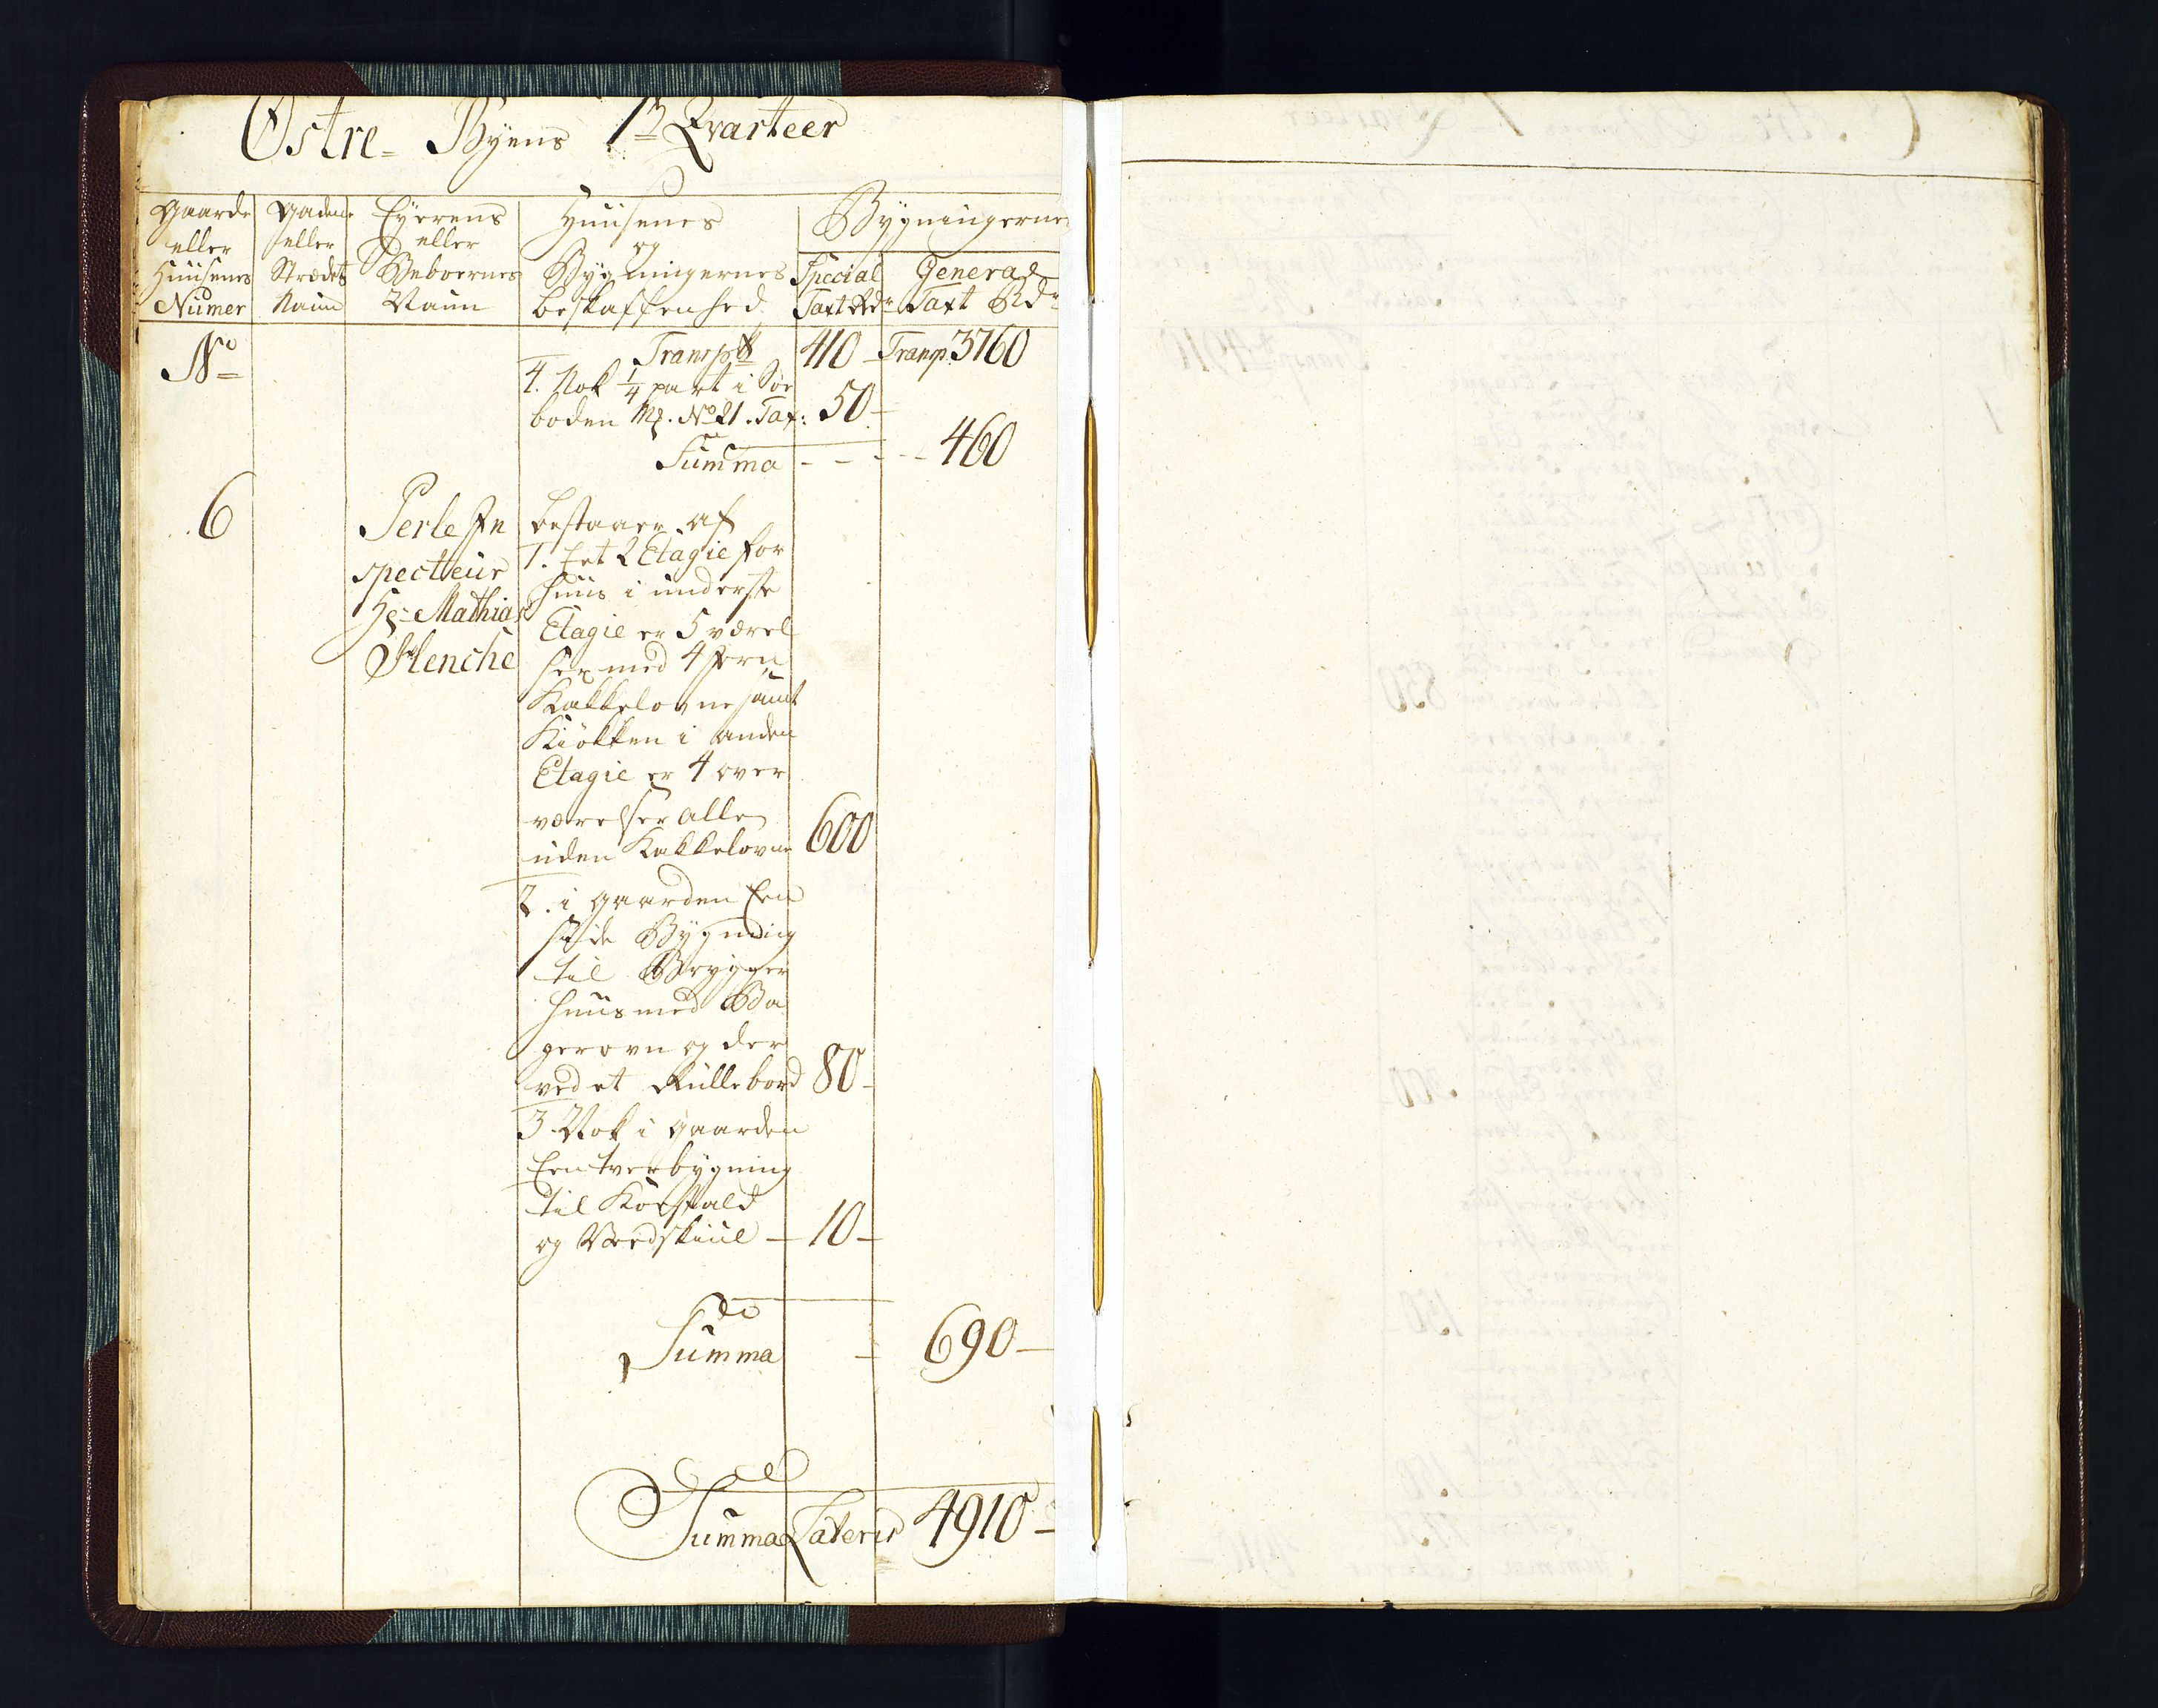 Østre- Byens 1te Qvarteer
Gaarde eller Huusenes Numer
Gadens eller Strædets Naun
Eyerens eller Beboernes Naun
Huusenes og Bygningernes beskaffenhed
Bygningernes
Special Taxt Rdr
General Taxt Rdr
No
Transpt 410 - Transp. 3760
4. Nok 1/4 part i Søe
boden No 21. Tax: 50 -
Summa - - - - 460
6
Perle In
specteur
Hr Mathias
Henche
bestaaer af
1. Eet 2 Etagie for
huus i underste
Etagie er 5 værel
ser med 4 Jern
Kakkelovne samt
Kiökken i anden
Etagie er 4 over
værelser alle
uden Kakkelovne 600
2. i gaarden Een
side Bygning
til Brygger
huus med Ba
gerovn og der
ved et Rullebord 80 -
3. Nok i gaarden
Een tverbygning
til Koestald
og Vedskiul - 10 -
Summa - 690 -
Summa Lateris 4910 -